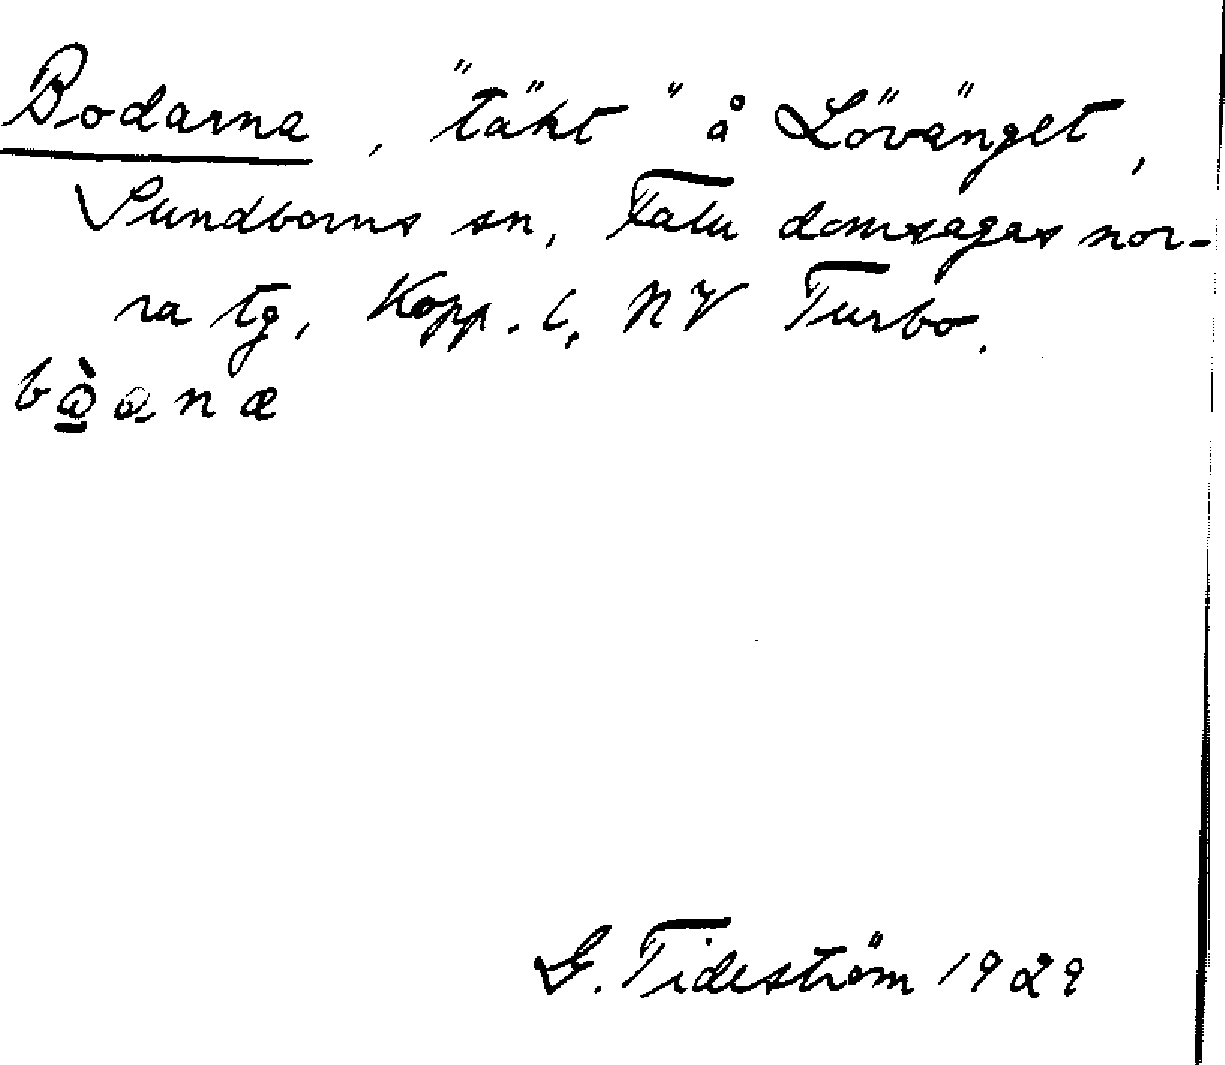 Bodarna, "täkt" å Lövänget,
Sundborns sn, Falu domsagas nor-
ra tg, Kopp. l, NV Turbo.
G. Tideström 1929